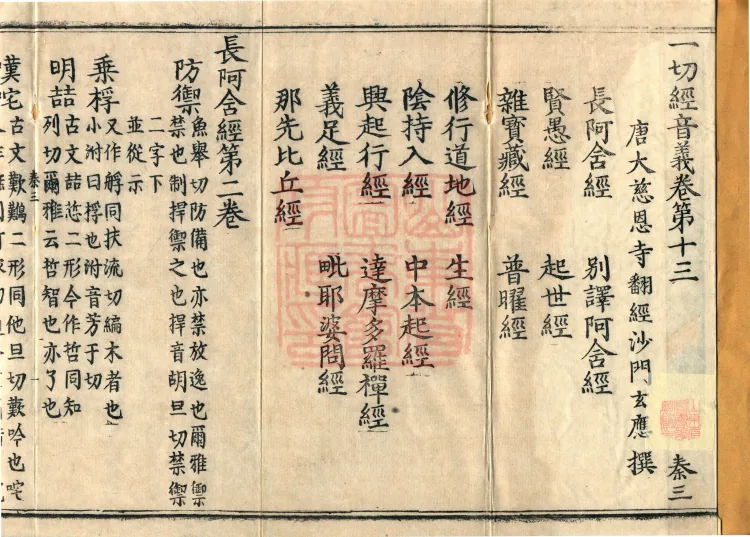 一切經音義卷第十三 秦三
唐大慈恩寺翻經沙門玄應 撰
長阿含經 別譯阿含經
賢愚經 起世經
雜寶藏經 普曜經
修行道地經 生經
陰持入經 中本起經
興起行經 達摩多羅禪經
義足經 毗耶婆問經
那先比丘經
長阿含經第二卷
防禦 魚舉切防備也亦禁放逸也爾雅禦
禁也制捍禦之也捍音胡旦切禁禦
二字下
並從示
乘桴 又作艀同扶流切編木者也
小泭曰桴也泭音芳于切
明喆 古文喆悊二形今作哲同知
列切爾雅云哲智也亦了也
秦三 一
咤 古文歎 二形同他旦切歎吟也咤